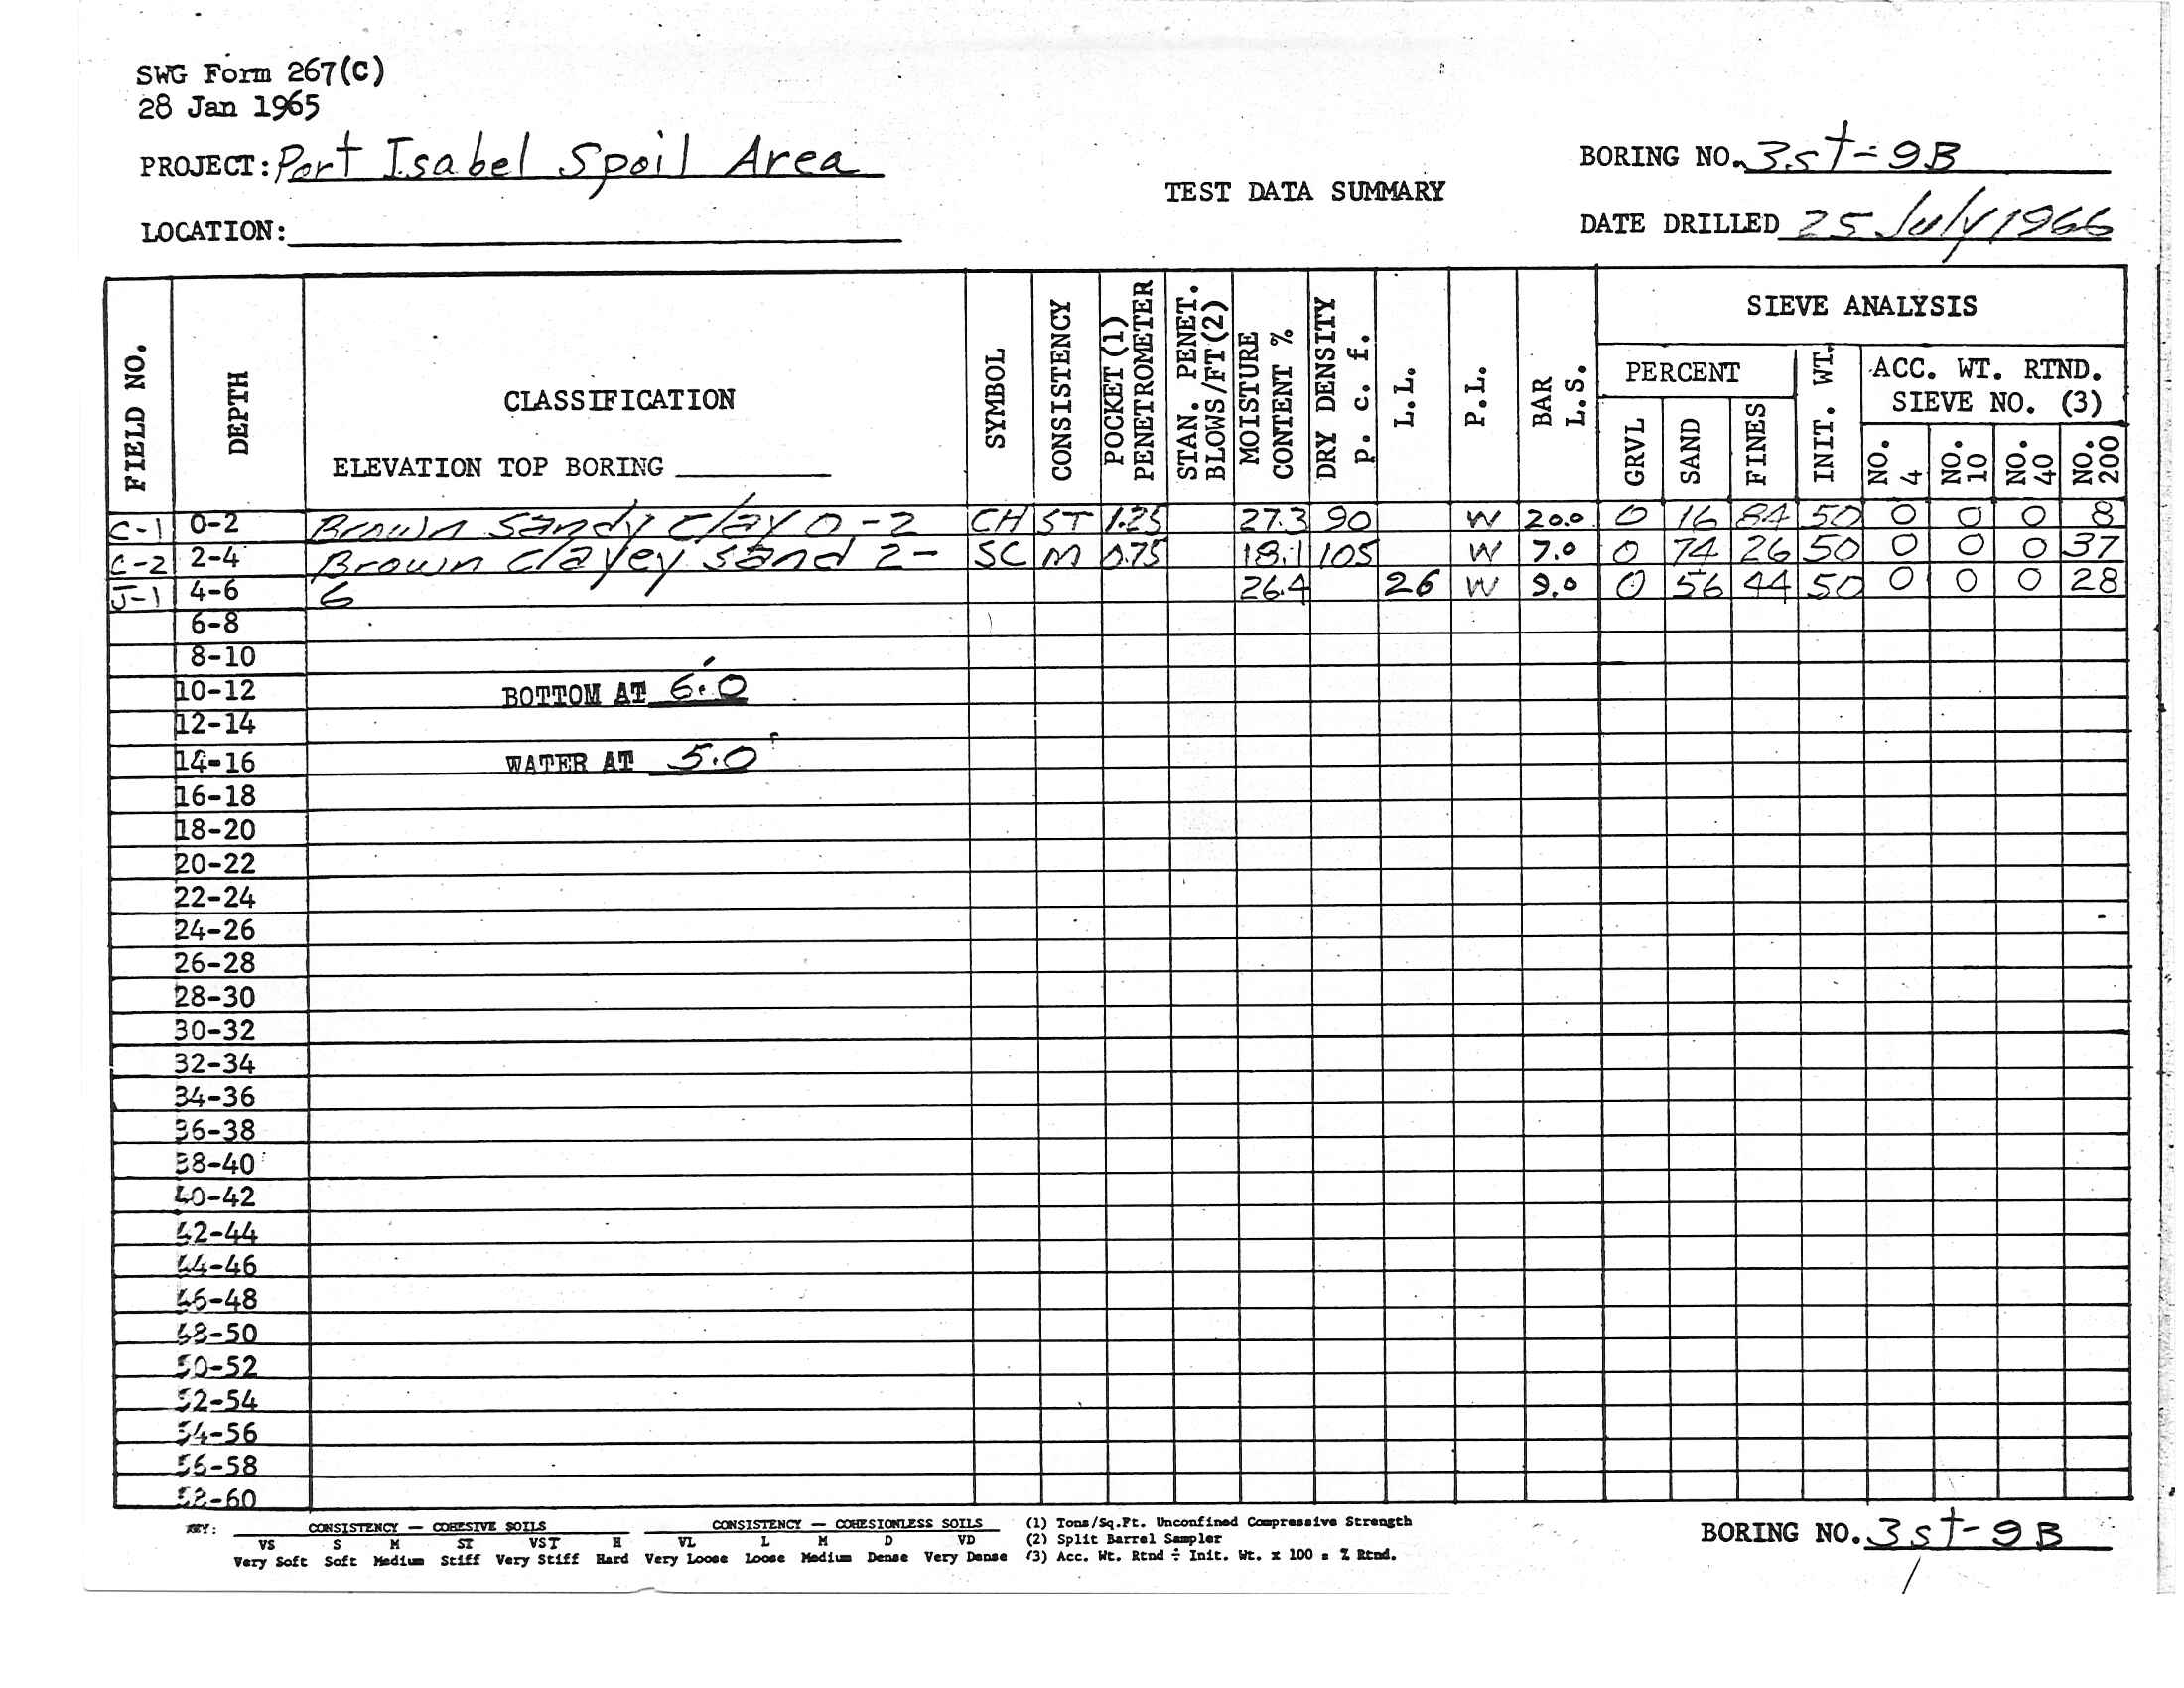 SWG Form 267(C)
28 Jan 1965
PROJECT: Port Isabel Spoil Area
BORING NO. 3st-9B
TEST DATA SUMMARY
LOCATION:
DATE DRILLED 25 July 1966
FIELD NO.
DEPTH
CLASSIFICATION
ELEVATION TOP BORING
SYMBOL
CONSISTENCY
POCKET (1) PENETROMETER
STAN. PENET. BLOWS/FT(2)
MOISTURE CONTENT %
DRY DENSITY p. c. f.
L.L.
P.L.
BAR L.S.
SIEVE ANALYSIS
PERCENT
GRVL
SAND
FINES
INIT. WT.
ACC. WT. RTND.
SIEVE NO. (3)
NO. 4
NO. 10
NO. 40
NO. 200
C-1 0-2 Brown sandy clay 0-2 CH ST 1.25 27.3 90 W 20.0 0 16 84 50 0 0 0 8
C-2 2-4 Brown clayey sand 2- SC M 0.75 18.1 105 W 7.0 0 74 26 50 0 0 0 37
J-1 4-6 6 26.4 26 W 9.0 0 56 44 50 0 0 0 28
6-8
8-10
10-12 BOTTOM AT 6.0'
12-14
14-16 WATER AT 5.0'
16-18
18-20
20-22
22-24
24-26
26-28
28-30
30-32
32-34
34-36
36-38
38-40
40-42
42-44
44-46
46-48
48-50
50-52
52-54
54-56
56-58
58-60
KEY: CONSISTENCY — COHESIVE SOILS CONSISTENCY — COHESIONLESS SOILS (1) Tons/Sq.Ft. Unconfined Compressive Strength
VS S M ST VST H VL L M D VD (2) Split Barrel Sampler
Very Soft Soft Medium Stiff Very Stiff Hard Very Loose Loose Medium Dense Very Dense (3) Acc. Wt. Rtnd ÷ Init. Wt. x 100 = % Rtnd.
BORING NO. 3st-9B